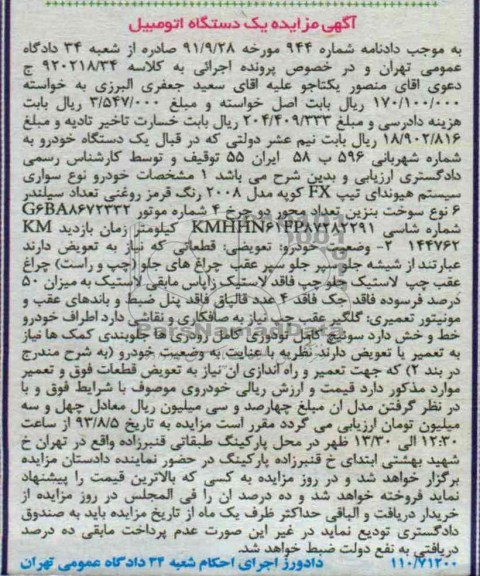 آگهی مزایده یک دستگاه اتومبیل
به موجب دادنامه شماره ۹۴۴ مورخه ۹۱/۹/۲۸ صادره از شعبه ۳۴ دادگاه
عمومی تهران و در خصوص پرونده اجرائی به کلاسه ۹۲۰۲۱۸/۳۴ ج
دعوی اقای منصور یکتاجو علیه اقای سعید جعفری البرزی به خواسته
۱۷۰/۱۰۰/۰۰۰ ریال بابت اصل خواسته و مبلغ ۳/۵۴۷/۰۰۰ ریال بابت
هزینه دادرسی و مبلغ ۲۰۴/۴۰۹/۳۳۳ ریال بابت خسارت تاخیر تادیه و مبلغ
۱۸/۹۰۲/۸۱۶ ریال بابت نیم عشر دولتی که در قبال یک دستگاه خودرو به
شماره شهربانی ۵۹۶ ب ۵۸ ایران ۵۵ توقیف و توسط کارشناس رسمی
دادگستری ارزیابی و بدین شرح می باشد ۱ مشخصات خودرو نوع سواری
سیستم هیوندای تیپ FX کوپه مدل ۲۰۰۸ رنگ قرمز روغنی تعداد سیلندر
۶ نوع سوخت بنزین تعداد محور دو چرخ ۴ شماره موتور G۶BA۸۶۷۲۳۳۲
شماره شاسی KMHHN۶۱FP۸۷۲۸۲۲۹۱ کیلومتر زمان بازدید KM
۱۴۴۷۶۲ ۲- وضعیت خودرو: تعویضی: قطعاتی که نیاز به تعویض دارند
عبارتند از شیشه جلو سپر جلو سپر عقب چراغ های جلو (چپ و راست) چراغ
عقب چپ لاستیک جلو چپ فاقد لاستیک زاپاس مابقی لاستیک به میزان ۵۰
درصد فرسوده فاقد جک فاقد ۴ عدد قالپاق فاقد پنل ضبط و باندهای عقب و
مونیتور تعمیری: گلگیر عقب چپ نیاز به صافکاری و نقاشی دارد اطراف خودرو
خط و خش دارد سوئیچ کامل تودوزی کامل رودری ها جلوبندی کمک ها نیاز
به تعمیر یا تعویض دارند نظریه با عنایت به وضعیت خودرو (به شرح مندرج
در بند ۲) که جهت تعمیر و راه اندازی ان نیاز به تعویض قطعات فوق و تعمیر
موارد مذکور دارد قیمت و ارزش ریالی خودروی موصوف با شرایط فوق و با
در نظر گرفتن مدل ان مبلغ چهارصد و سی میلیون ریال معادل چهل و سه
میلیون تومان ارزیابی می گردد مقرر است مزایده به تاریخ ۹۳/۸/۵ از ساعت
۱۲:۳۰ الی ۱۳/۳۰ ظهر در محل پارکینگ طبقاتی قنبرزاده واقع در تهران خ
شهید بهشتی ابتدای خ قنبرزاده پارکینگ در حضور نماینده دادستان مزایده
برگزار خواهد شد و در روز مزایده به کسی که بالاترین قیمت را پیشنهاد
نماید فروخته خواهد شد و ده درصد ان را فی المجلس در روز مزایده از
خریدار دریافت و الباقی حداکثر ظرف یک ماه از تاریخ مزایده باید به صندوق
دادگستری تودیع نماید در غیر این صورت عدم پرداخت مابقی ده درصد
دریافتی به نفع دولت ضبط خواهد شد.
۱۱۰/۷۱۲۰۰ دادورز اجرای احکام شعبه ۳۴ دادگاه عمومی تهران